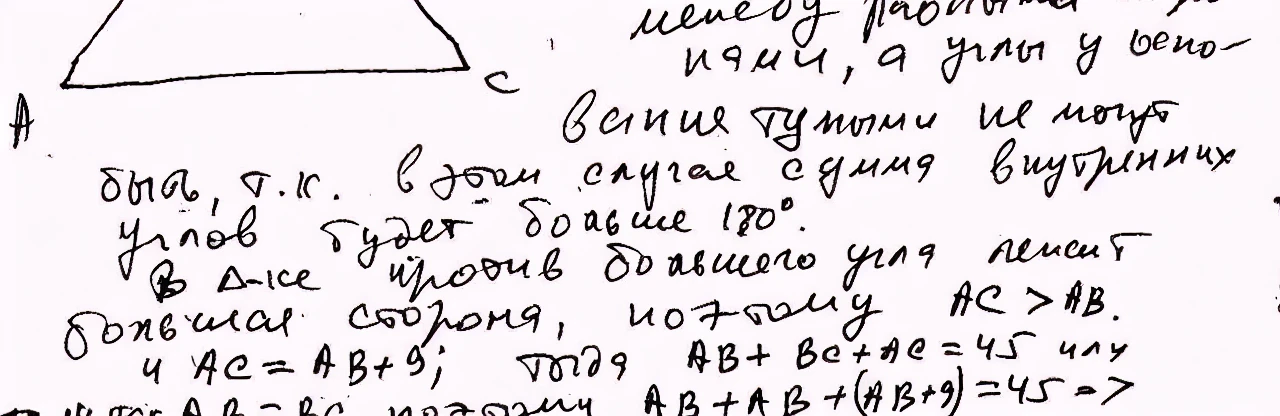 между
нами, а углы у осно-
A
C
вания тупыми не могут
быть, т.к. в этом случае сумма внутренних
углов будет больше 180°.
В Δ-ке против большего угла лежит
большая сторона, поэтому AC > AB.
и AC = AB + 9; тогда AB + BC + AC = 45 или
AB = BC поэтому AB + AB + (AB+9) = 45 =>